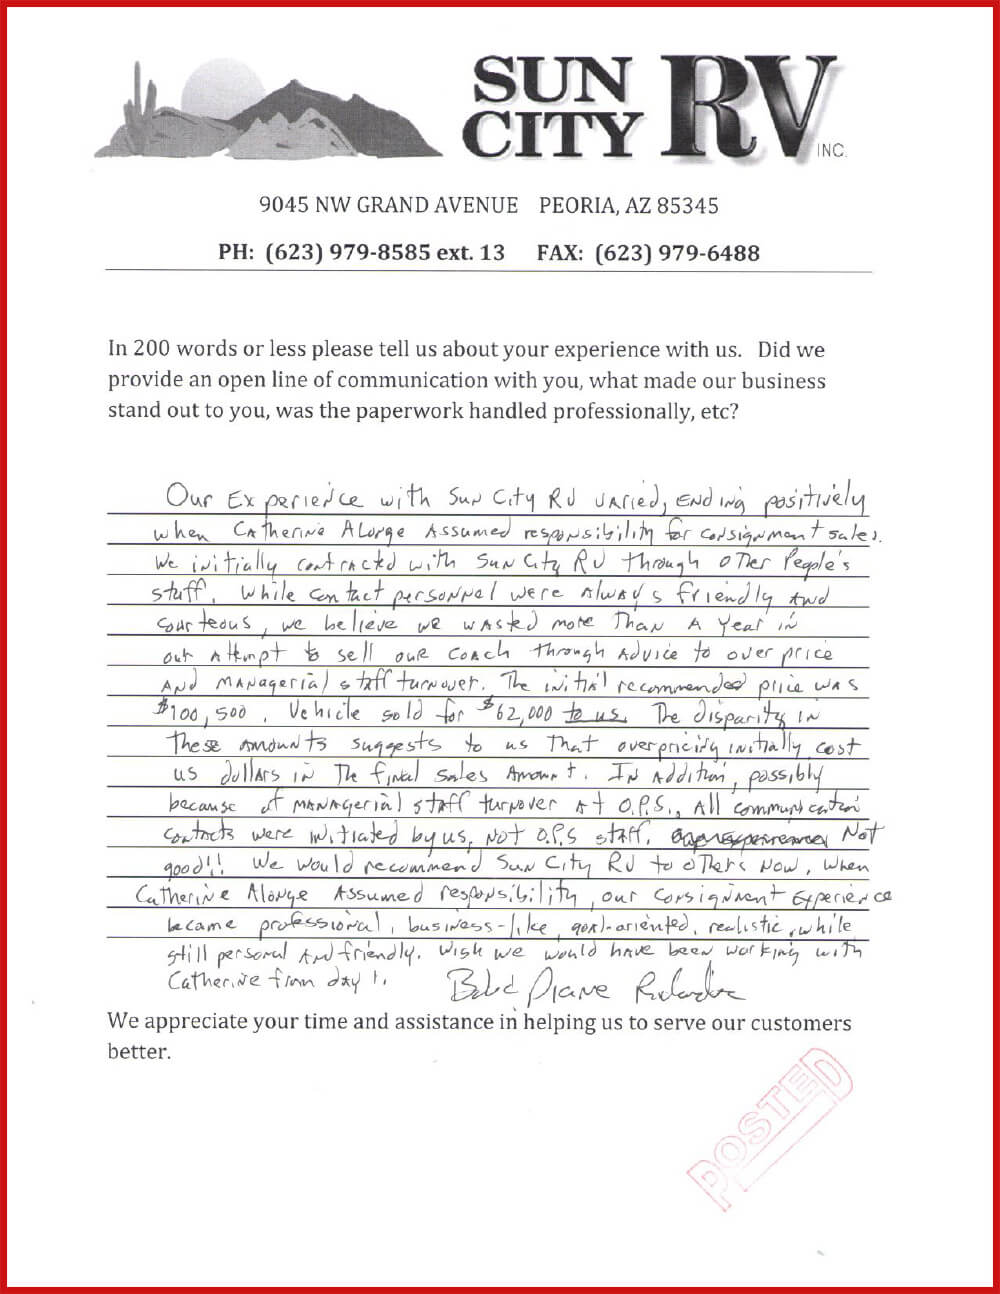 SUN CITY RV INC.
9045 NW GRAND AVENUE PEORIA, AZ 85345
PH: (623) 979-8585 ext. 13 FAX: (623) 979-6488
In 200 words or less please tell us about your experience with us. Did we
provide an open line of communication with you, what made our business
stand out to you, was the paperwork handled professionally, etc?
Our Experience with Sun City RV varied, ending positively
when Catherine Alonge assumed responsibility for consignment sales.
We initially contracted with Sun City RV through Other People's
stuff. While contact personnel were always friendly and
courteous, we believe we wasted more than a year in
our attmpt to sell our coach through advice to over price
and managerial staff turnover. The initial recommended price was
$100,500. Vehicle sold for $62,000 to us. The disparity in
these amounts suggests to us that overpricing initially cost
us dollars in the final sales amount. In addition, possibly
because of managerial staff turnover at O.P.S., all communication
contacts were initiated by us, not O.P.S staff. Not
good!! We would recommend Sun City RV to others now, when
Catherine Alonge assumed responsibility, our consignment experience
became professional, business-like, goal-oriented, realistic, while
still personal and friendly. Wish we would have been working with
Catherine from day 1. Diane
We appreciate your time and assistance in helping us to serve our customers
better.
POSTED